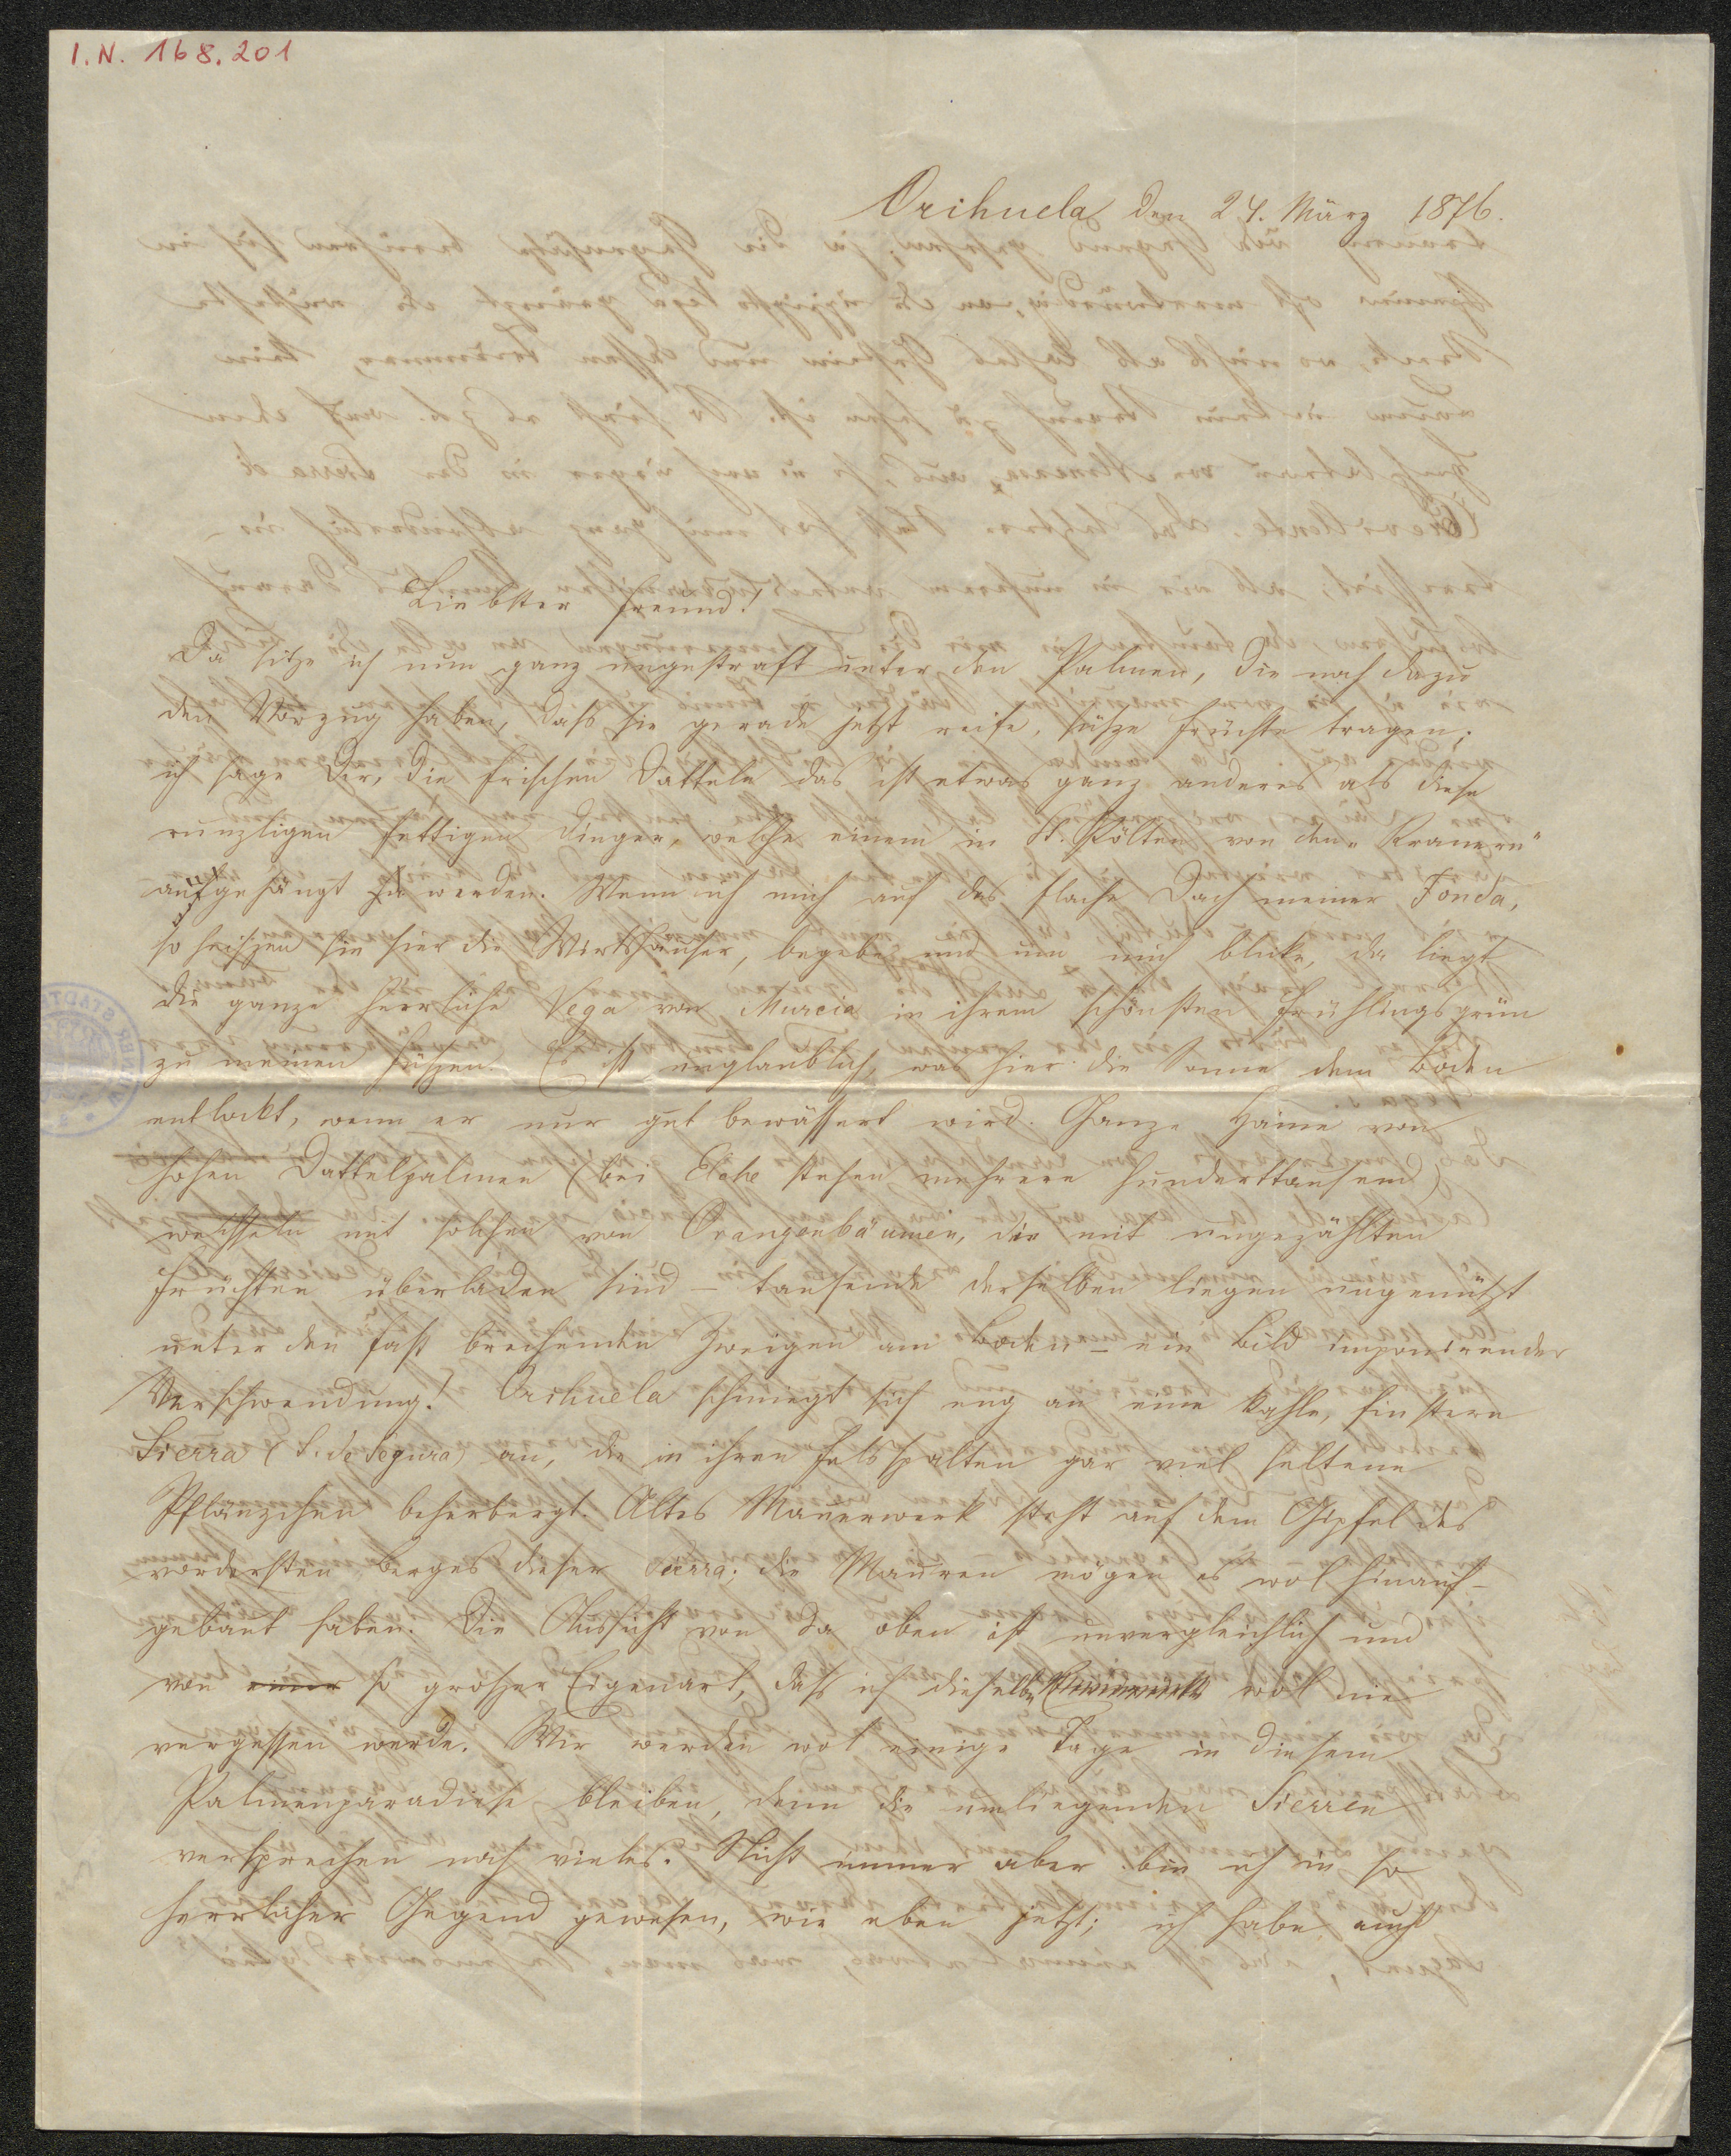 I. N. 168.201
Orihuela den 24. März 1876.
Liebster Freund!
Da sitze ich nun ganz ungestraft unter den Palmen, die noch dazu
den Vorzug haben, dass sie gerade jetzt reife, süsze Früchte tragen;
ich sage Dir, die frischen Datteln das ist etwas ganz anderes als diese
runzligen fettigen Dinger, welche einem in St. Pölten von den „Kramern"
aufgehängt werden. Wenn ich mich auf das flache Dach meiner Fonda,
so heiszen sie hier die Wirtshäuser, begebe und um mich blicke, da liegt
die ganze herrliche Vega von Murcia in ihrem schönsten Frühlingsgrün
zu meinen Füszen. Es ist unglaublich, was hier die Sonne dem Boden
entlockt, wenn er nur gut bewässert wird. Ganze Haine von
hohen Dattelpalmen (bei Elche stehen mehrere Hunderttausend)
wechseln mit solchen von Orangenbäumen, die mit ungezählten
Früchten überladen sind – tausende derselben liegen ungenützt
unter den fast brechenden Zweigen am Boden – ein Bild imponirender
Verschwendung! Orihuela schmiegt sich eng an eine kahle, finstere
Sierra (S. de Segura) an, die in ihren Felsspalten gar viel seltene
Pflänzchen beherbergt. Altes Mauerwerk steht auf dem Gipfel des
vordersten Berges dieser Sierra; die Mauren mögen es wol hinauf-
gebaut haben. Die Aussicht von da oben ist unvergleichlich und
von einer so groszer Eigenart, dass ich dieselbe wol nie
vergessen werde. Wir werden wol einige Tage in diesem
Palmenparadiese bleiben, denn die umliegenden Sierren
versprechen noch vieles. Nicht immer aber bin ich in so
herrlicher Gegend gewesen, wie eben jetzt; ich habe auch